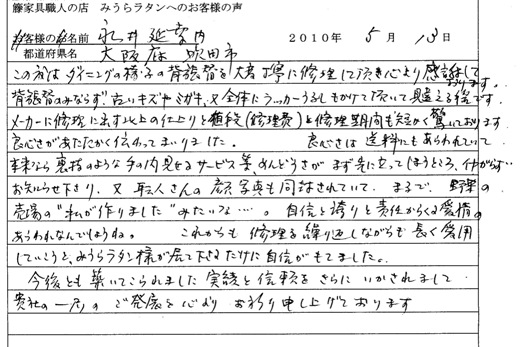 籐家具職人の店 みうらラタンへのお客様の声
お客様のお名前 永井 延 2010年 5月 13日
都道府県名 大阪府 吹田市
この度はダイニングの椅子の背張替を大変丁寧に修理して頂き心より感謝しております。
背張替のみならず、古いキズやミガキ、又全体にラッカーうるしもかけて頂いて見違える程です。
メーカーに修理に出す以上の仕上りと値段(修理費)と修理期間も短かく驚いております
良心さがあたたかく伝わってまいりました。 良心さは送料にもあらわれていて
本来なら裏技のような手の内見せるサービス業、めんどうさがまず先に立ってしまうところ、仲がらず
お知らせ下さり、又職人さんの顔写真も同封されていて、まるで、野菜の
売場の"私が作りました"みたいな…。自信と誇りと責任からくる愛情の
あらわれなんでしょうね。 これからも修理を繰り返しながらも長く愛用
していこうと、みうらラタン様が居て下さるだけに自信がもてました。
今後とも築いてこられました実績と信頼をさらにいかされまして
貴社の一層のご発展を心よりお祈り申し上げております